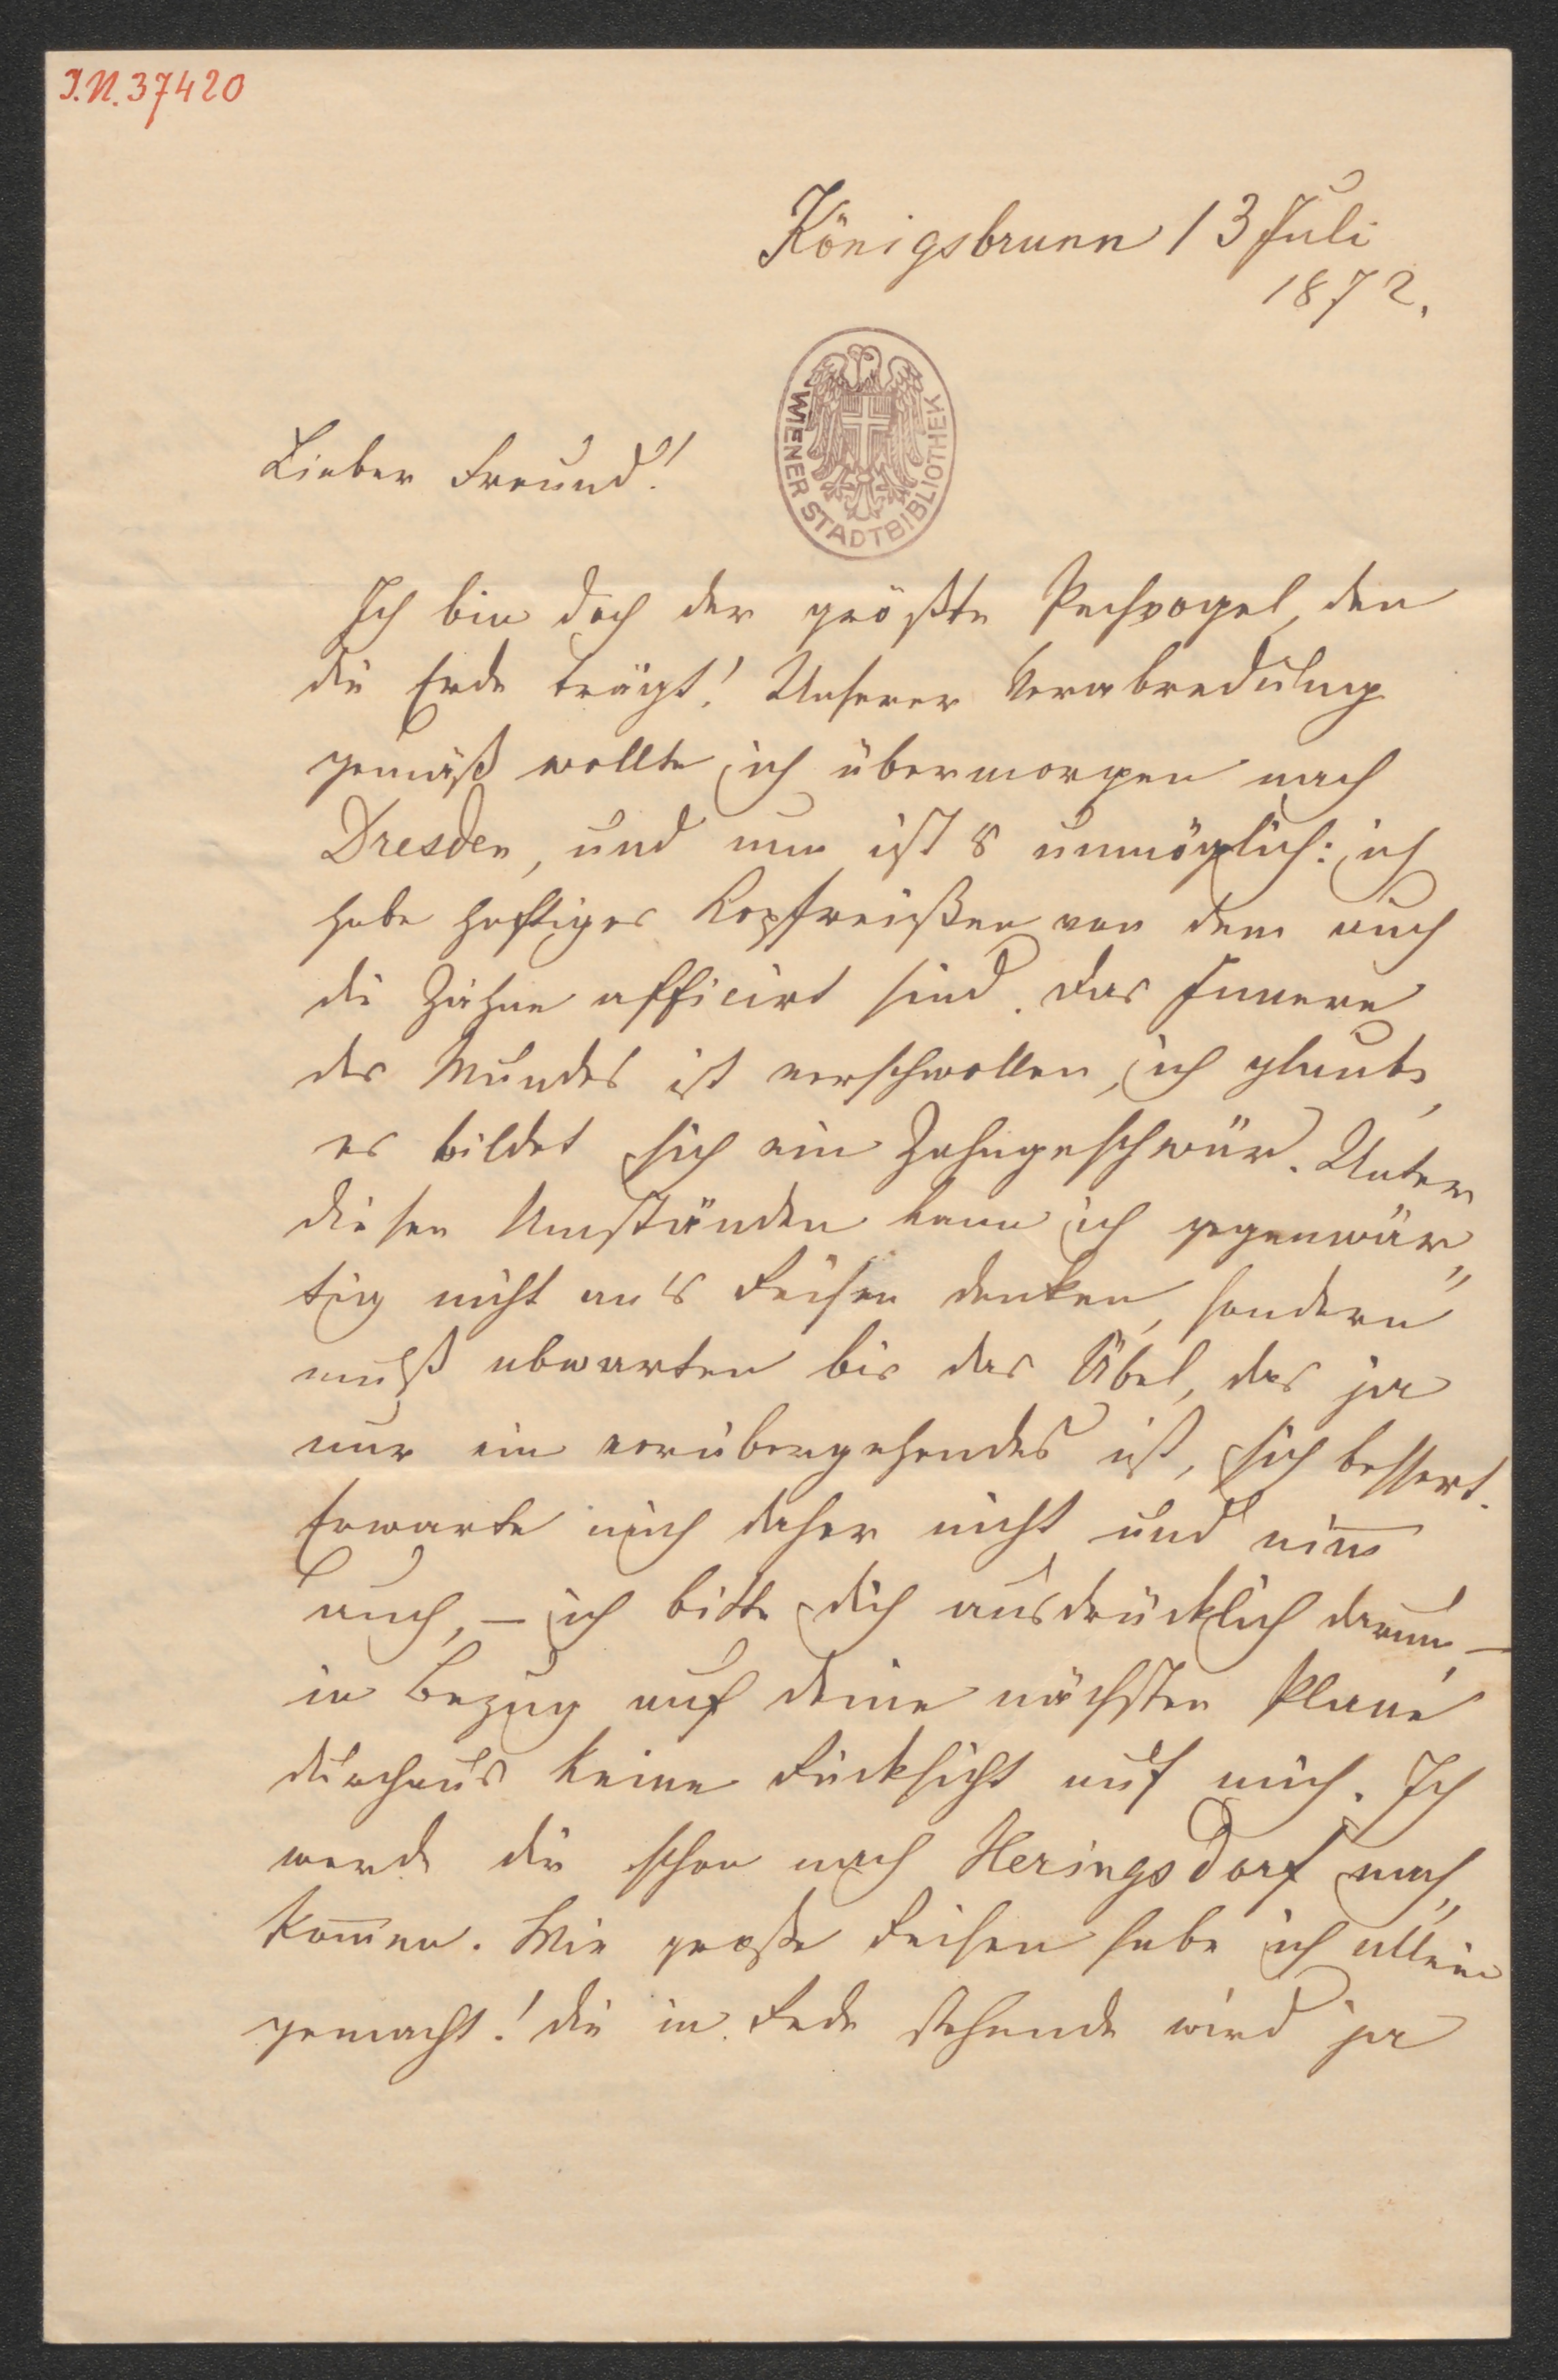 J.N. 37420
Königsbrunn 13 Juli
1872.
WIENER STADTBIBLIOTHEK
Lieber Freund!
Ich bin doch der größte Pechvogel, den
die Erde trägt! Unserer Verabredung
gemäß wollte ich übermorgen nach
Dresden, und nun ist's unmöglich: ich
habe heftiges Kopfreißen von dem auch
die Zähne afficirt sind. Das Innere
des Mundes ist verschwollen, ich glaube,
es bildet sich ein Zahngeschwür. Unter
diesen Umständen kann ich gegenwär„
tig nicht an's Reisen denken, sondern
muß abwarten bis das Übel, das ja
nur ein vorübergehendes ist, sich bessert.
Erwarte mich daher nicht und nim̅
auch, – ich bitte dich ausdrücklich darum –
in Bezug auf deine nächsten Plane
durchaus keine Rücksicht auf mich. Ich
werde dir schon nach Heringsdorf nach„
kom̅en. Wie große Reisen habe ich allein
gemacht! die in Rede stehende wird ja